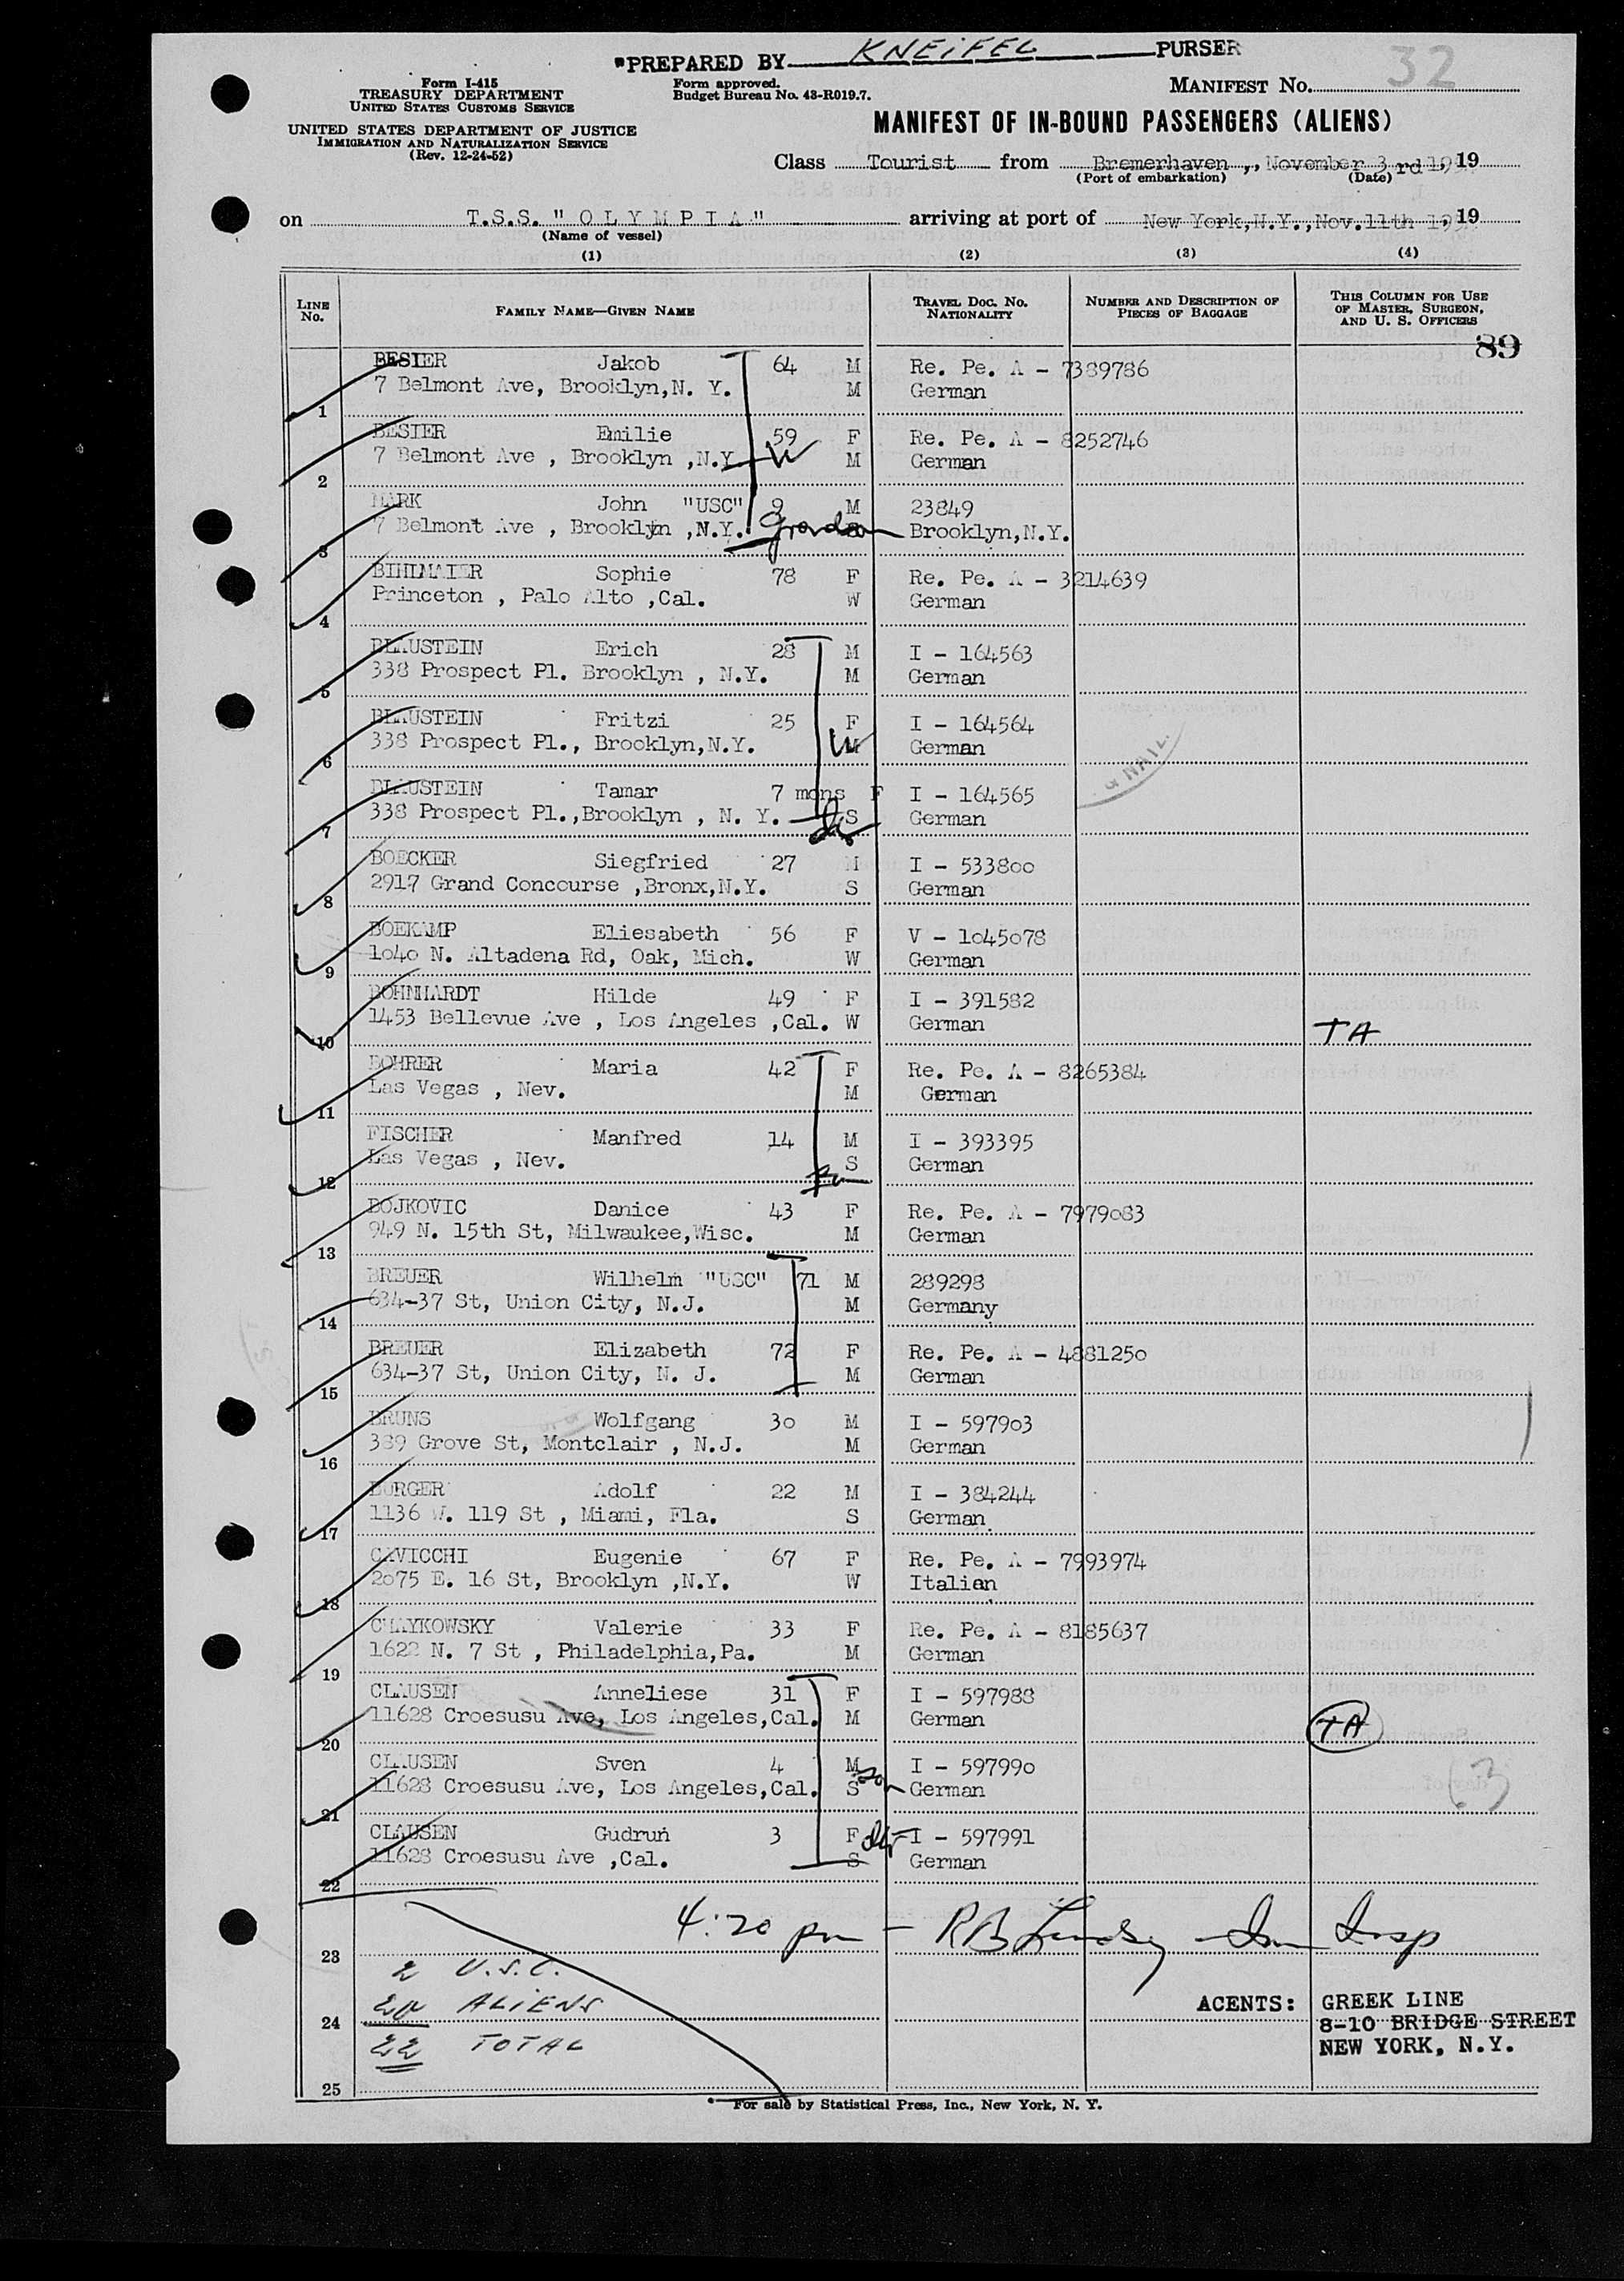 *PREPARED BY KNEIFEL PURSER
32
Form I-415
TREASURY DEPARTMENT
UNITED STATES CUSTOMS SERVICE
Form approved.
Budget Bureau No. 43-R019.7.
MANIFEST No.
UNITED STATES DEPARTMENT OF JUSTICE
IMMIGRATION AND NATURALIZATION SERVICE
(Rev. 12-24-52)
MANIFEST OF IN-BOUND PASSENGERS (ALIENS)
Class Tourist from Bremerhaven , November 3rd , 19
(Port of embarkation) (Date)
on T.S.S. "OLYMPIA" arriving at port of New York,N.Y.,Nov.11th , 19
(Name of vessel)
(1) (2) (3) (4)
LINE No. FAMILY NAME—GIVEN NAME TRAVEL DOC. NO. NATIONALITY NUMBER AND DESCRIPTION OF PIECES OF BAGGAGE THIS COLUMN FOR USE OF MASTER, SURGEON, AND U. S. OFFICERS
89
BESIER Jakob 64 M Re. Pe. A - 7389786
7 Belmont Ave, Brooklyn,N. Y. M German
1
BESIER Emilie 59 F Re. Pe. A - 8252746
7 Belmont Ave , Brooklyn ,N.Y. W M German
2
MARK John "USC" 9 M 23849
7 Belmont Ave , Brooklyn ,N.Y. grandson Brooklyn,N.Y.
3
BIHLMAIER Sophie 78 F Re. Pe. A - 3214639
Princeton , Palo Alto ,Cal. W German
4
BLAUSTEIN Erich 28 M I - 164563
338 Prospect Pl. Brooklyn , N.Y. M German
5
BLAUSTEIN Fritzi 25 F I - 164564
338 Prospect Pl., Brooklyn,N.Y. W M German
6
BLAUSTEIN Tamar 7 mons F I - 164565
338 Prospect Pl.,Brooklyn , N. Y. S German
7
BOECKER Siegfried 27 M I - 533800
2917 Grand Concourse ,Bronx,N.Y. S German
8
BOEKAMP Eliesabeth 56 F V - 1045078
1040 N. Altadena Rd, Oak, Mich. W German
9
BOHNHARDT Hilde 49 F I - 391582
1453 Bellevue Ave , Los Angeles ,Cal. W German TA
10
BOHRER Maria 42 F Re. Pe. A - 8265384
Las Vegas , Nev. M German
11
FISCHER Manfred 14 M I - 393395
Las Vegas , Nev. S German
12
BOJKOVIC Danice 43 F Re. Pe. A - 7979083
949 N. 15th St, Milwaukee,Wisc. M German
13
BREUER Wilhelm "USC" 71 M 289298
634-37 St, Union City, N.J. M Germany
14
BREUER Elizabeth 72 F Re. Pe. A - 4881250
634-37 St, Union City, N. J. M German
15
BRUNS Wolfgang 30 M I - 597903
389 Grove St, Montclair , N.J. M German
16
BURGER Adolf 22 M I - 384244
1136 W. 119 St , Miami, Fla. S German
17
CAVICCHI Eugenie 67 F Re. Pe. A - 7993974
2075 E. 16 St, Brooklyn ,N.Y. W Italian
18
CHAYKOWSKY Valerie 33 F Re. Pe. A - 8185637
1622 N. 7 St , Philadelphia,Pa. M German
19
CLAUSEN Anneliese 31 F I - 597988
11628 Croesusu Ave, Los Angeles,Cal. M German TA
20
CLAUSEN Sven 4 M son I - 597990
11628 Croesusu Ave, Los Angeles,Cal. S German (3)
21
CLAUSEN Gudrun 3 F I - 597991
11628 Croesusu Ave ,Cal. S German
22
4:20 pm - RB Lindsy Im Insp
23
2 U.S.C.
20 ALIENS
24
22 TOTAL
25
AGENTS: GREEK LINE
8-10 BRIDGE STREET
NEW YORK, N.Y.
* For sale by Statistical Press, Inc., New York, N. Y.